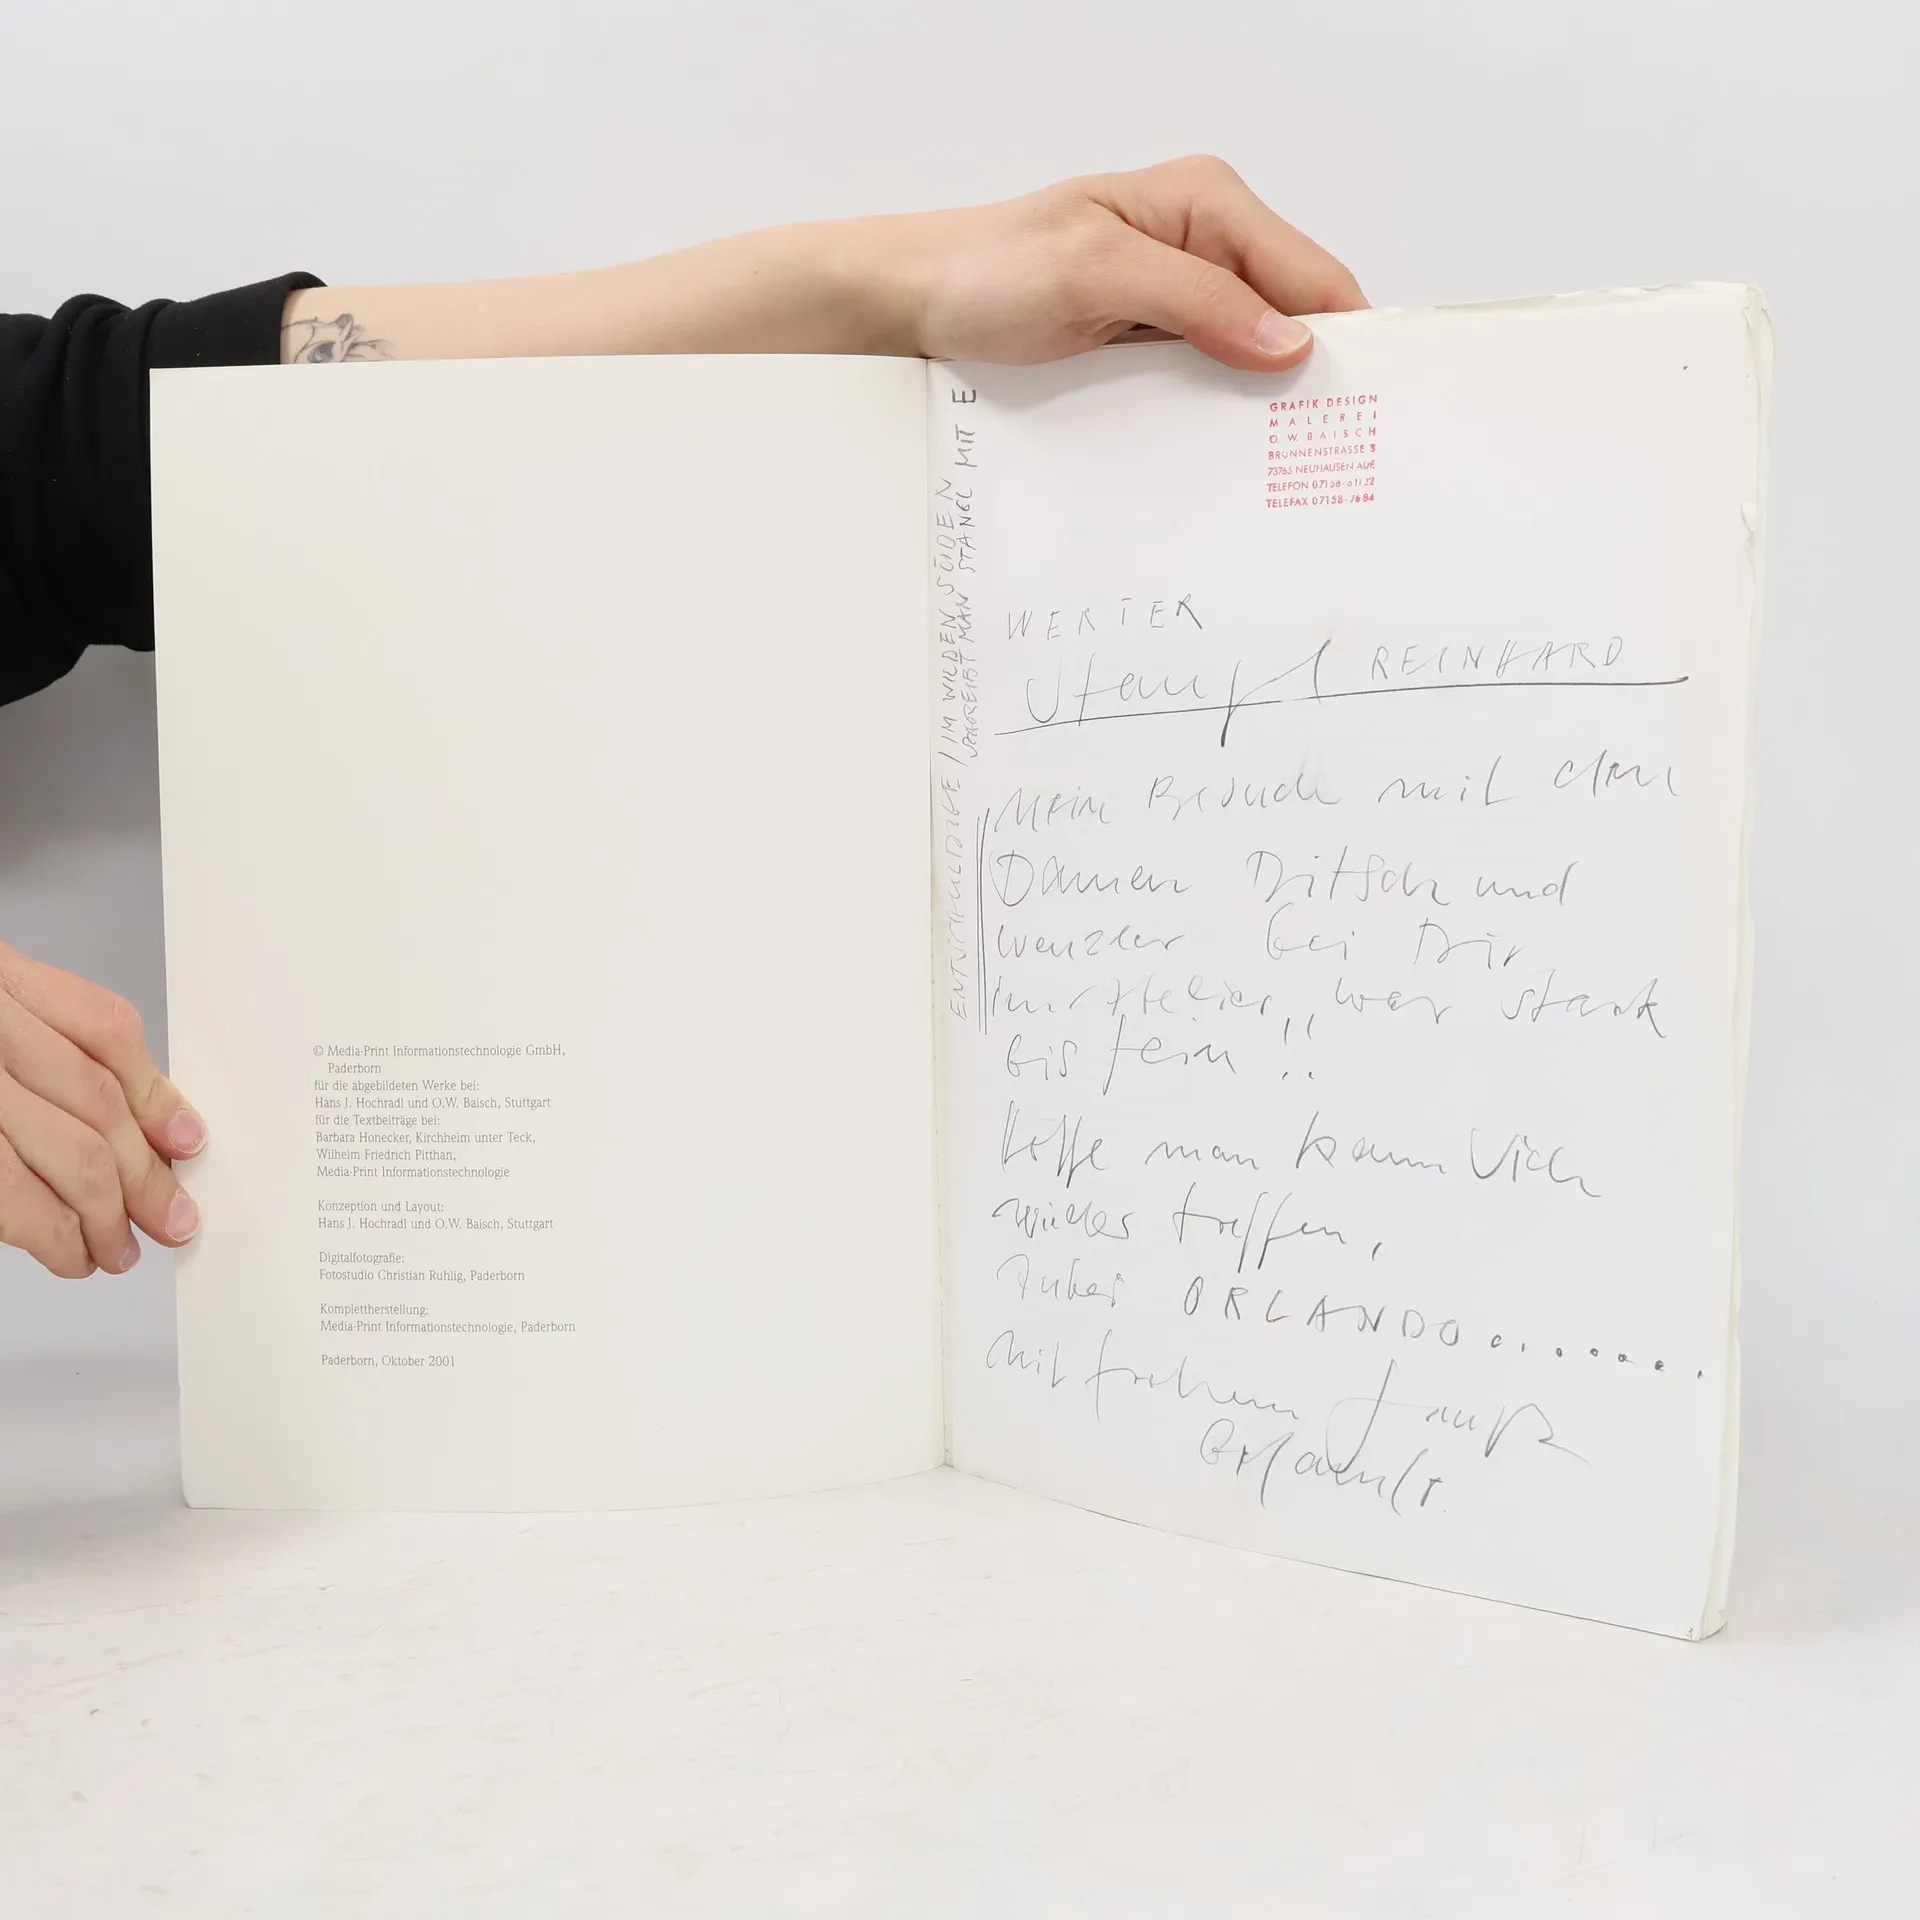 © Media-Print Informationstechnologie GmbH,
Paderborn
für die abgebildeten Werke bei:
Hans J. Hochradl und O.W. Baisch, Stuttgart
für die Textbeiträge bei:
Barbara Honecker, Kirchheim unter Teck,
Wilhelm Friedrich Pitthan,
Media-Print Informationstechnologie
Konzeption und Layout:
Hans J. Hochradl und O.W. Baisch, Stuttgart
Digitalfotografie:
Fotostudio Christian Ruhlig, Paderborn
Komplettherstellung:
Media-Print Informationstechnologie, Paderborn
Paderborn, Oktober 2001
ENTSCHULDIGE / IM WILDEN SÜDEN
SCHREIBT MAN STANGL MIT E
GRAFIK DESIGN
MALEREI
O. W. BAISCH
BRUNNENSTRASSE
73765 NEUHAUSEN ADF.
TELEFON
TELEFAX 07158-7684
WERTER
REINHARD
Mein Besuch mit den
Damen und
Wenzler bei Dir
im Atelier, war stark
bis fein !!
Hoffe man kann Dich
wieder treffen,
ORLANDO
mit frohem